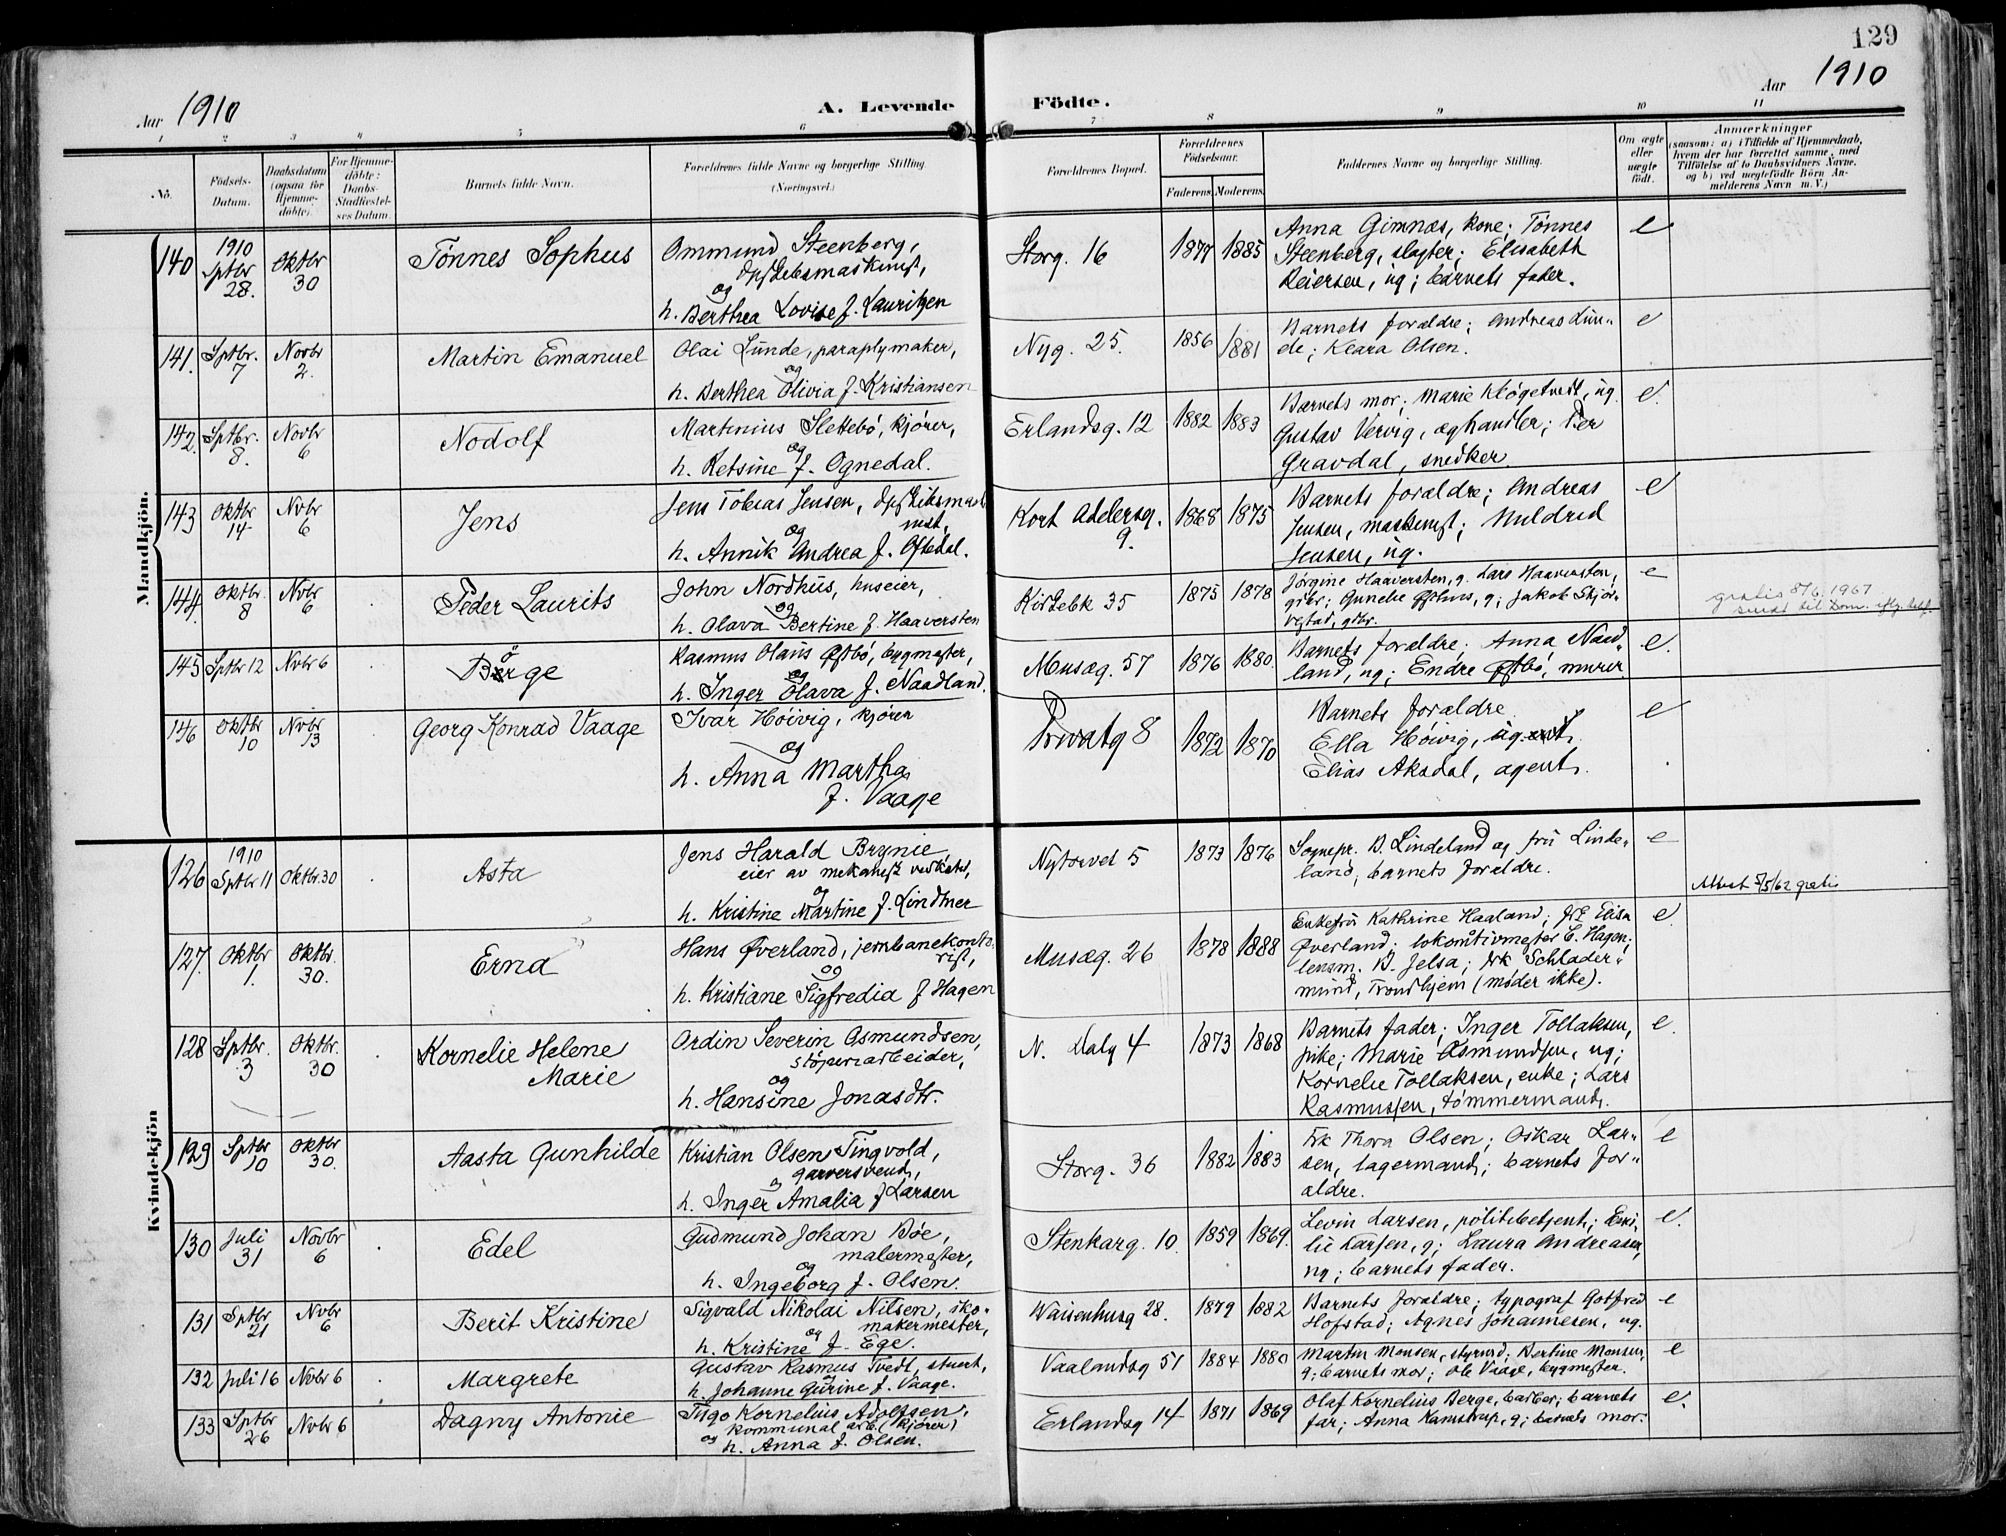 129
Aar 1910
A. Levende Födte.
Aar 1910
1 2 3 4 5 6 7 8 9 10 11
No. | Födsels-Datum. | Daabsdatum (ogsaa for Hjemme-döbte). | For Hjemme-döbte: Daabs-Stadfæstel-ses Datum. | Barnets fulde Navn. | Forældrenes fulde Navne og borgerlige Stilling (Næringsvei.) | Forældrenes Bopæl. | Forældrenes Födselsaar. Faderens. Moderens. | Faddernes Navne og borgerlige Stilling. | Om ægte eller uægte födt. | Anmærkninger (saasom: a) i Tilfælde af Hjemmedaab, hvem der har forrettet samme, med Tilföielse af to Daabsvidners Navne, og b) ved uægtefödte Börn An-melderens Navn m. V.)
Mandkjön.
140 | 1910 Sptbr 28. | Oktbr 30 | Tönnes Sophus | Ommund Steenberg,
og
h. Berthea Lovise f. Lauritzen | Storg. 16 | 1877 | 1885 | Anna Gimnæs, kone; Tönnes
Steenberg, slagter; Elisabeth
Reiersen, ug; barnets fader. | e
141. | Sptbr. 7 | Novbr 2. | Martin Emanuel | Olai Lunde, paraplymaker,
og
h. Berthea Olivia f. Kristiansen | Nyg. 25. | 1856 | 1881 | Barnets forældre; Andreas Lun-
de; Klara Olsen. | e
142. | Sptbr. 8. | Novbr 6 | Nodolf | Martinius Slettebö, kjörer,
og
h. Retsine f. Ognedal. | Erlandsg. 12 | 1882 | 1883 | Barnets mor; Marie Klögetvedt, ug.
Gustav Vervig, æghandler; Peer
Gravdal, snedker. | e.
143 | Oktbr 14 | Nvbr 6 | Jens | Jens Tobias Jensen,
og
h. Annik Andrea f. Oftedal. | Kort Adelersg. 9. | 1868 | 1875 | Barnets forældre; Andreas
Jensen, maskinist; Mildred
Jensen, ug. | e
144. | Oktbr. 8 | Nvbr 6 | Peder Laurits | John Nordhus, huseier,
og
h. Olava Bertine f. Haaversten | Kirkebk 35 | 1875 | 1878 | Jörgine Haaversten, g. Lars Haaversten,
gbr; Gunelie Östhus, g; Jakob Skjör-
vestad, gbr. | e | gratis 5/6 1967
145 | Sptbr 12 | Nvbr 6 | Börge | Rasmus Olaus Østbö, bygmester,
og
h. Inger Olava f. Naadland. | Musæg. 57 | 1876 | 1880. | Barnets forældre; Anna Naad-
land, ug; Endre Østbö, murer | e.
146 | Oktbr 10 | Nvbr 13 | Georg Konrad Vaage | Ivar Höivig, kjörer
og
h. Anna Martha
f. Vaage | Privatg 8 | 1872 | 1870 | Barnets forældre
Ella Höivig, ug
Elias Aksdal, agent. | e
Kvindekjön
126 | 1910 Sptbr 11 | Oktbr. 30 | Asta | Jens Harald Brynie
eier av mekanisk verksted,
og
h. Kristine Martine f. Lindtner | Nytorvet 5 | 1873 | 1876 | Sognepr. B. Lindeland og fru Linde-
land, barnets forældre. | e | Attest 5/5/62 gratis
127. | Oktbr 1. | Oktbr. 30. | Erna | Hans Øverland, jernbanekonto-
rist,
og
h. Kristiane Sigfredia f Hagen | Musæg. 26 | 1878 | 1888 | Enkefru Kathrine Haaland; frk Elisa
Øverland; lokomtivmester E. Hagen;
lensm. B. Jelsa; frk Schlader-
mund, Trondhjem (möder ikke). | e
128 | Sptbr. 3 | Oktbr. 30 | Kornelie Helene
Marie | Ordin Severin Asmundsen,
stöperiarbeider,
og
h. Hansine Jonasdtr. | N. Dalg 4 | 1873 | 1868 | Barnets fader; Inger Tollaksen,
pike; Marie Osmundsen, ug;
Kornelie Tollaksen, enke; Lars
Rasmussen, tömmermand. | e.
129 | Sptbr 10 | Oktbr 30. | Aasta Gunhilde | Kristian Olsen Tingvold,
garversvend,
og
h. Inger Amalia f Larsen | Storg. 36 | 1882 | 1883 | Frk Thora Olsen; Oskar Lar-
sen, lagermand; barnets for-
ældre. | e
130 | Juli 31 | Novbr 6 | Edel | Gudmund Johan Böe,
malermester,
og
h. Ingeborg f. Olsen. | Stenkarg. 10. | 1859 | 1869. | Levin Larsen, politibetjent; Emi-
lie Karsen, g; Laura Andreasen,
ug; barnets fader. | e.
131 | Sptbr. 21 | Nvbr 6 | Berit Kristine | Sigvald Nikolai Nilsen, sko-
makermester,
og
h. Kristine f. Ege. | Waisenhusg 28. | 1879 | 1882 | Barnets forældre; typograf Gotfred
Hofstad; Agnes Johannesen, ug. | e
132 | Juli 16 | Nvbr 6 | Margrete | Gustav Rasmus Tvedt, stuert,
og
h. Johanne Gurine f. Vaage. | Vaalandsg 51 | 1884 | 1880 | Martin Monsen, styrmd; Bertine Monsen,
g; barnets mor; Ole Vaage, bygmester. | e
133 | Sptbr 26 | Nvbr 6 | Dagny Antonie | Kornelius Adolfsen,
kommunal arb. (kjörer)
og h. Anna f. Olsen. | Erlandsg 14 | 1871 | 1869 | Olaf Kornelius Berge, barber; barnets
far; Anna Kamstrup, g; barnets mor. | e.